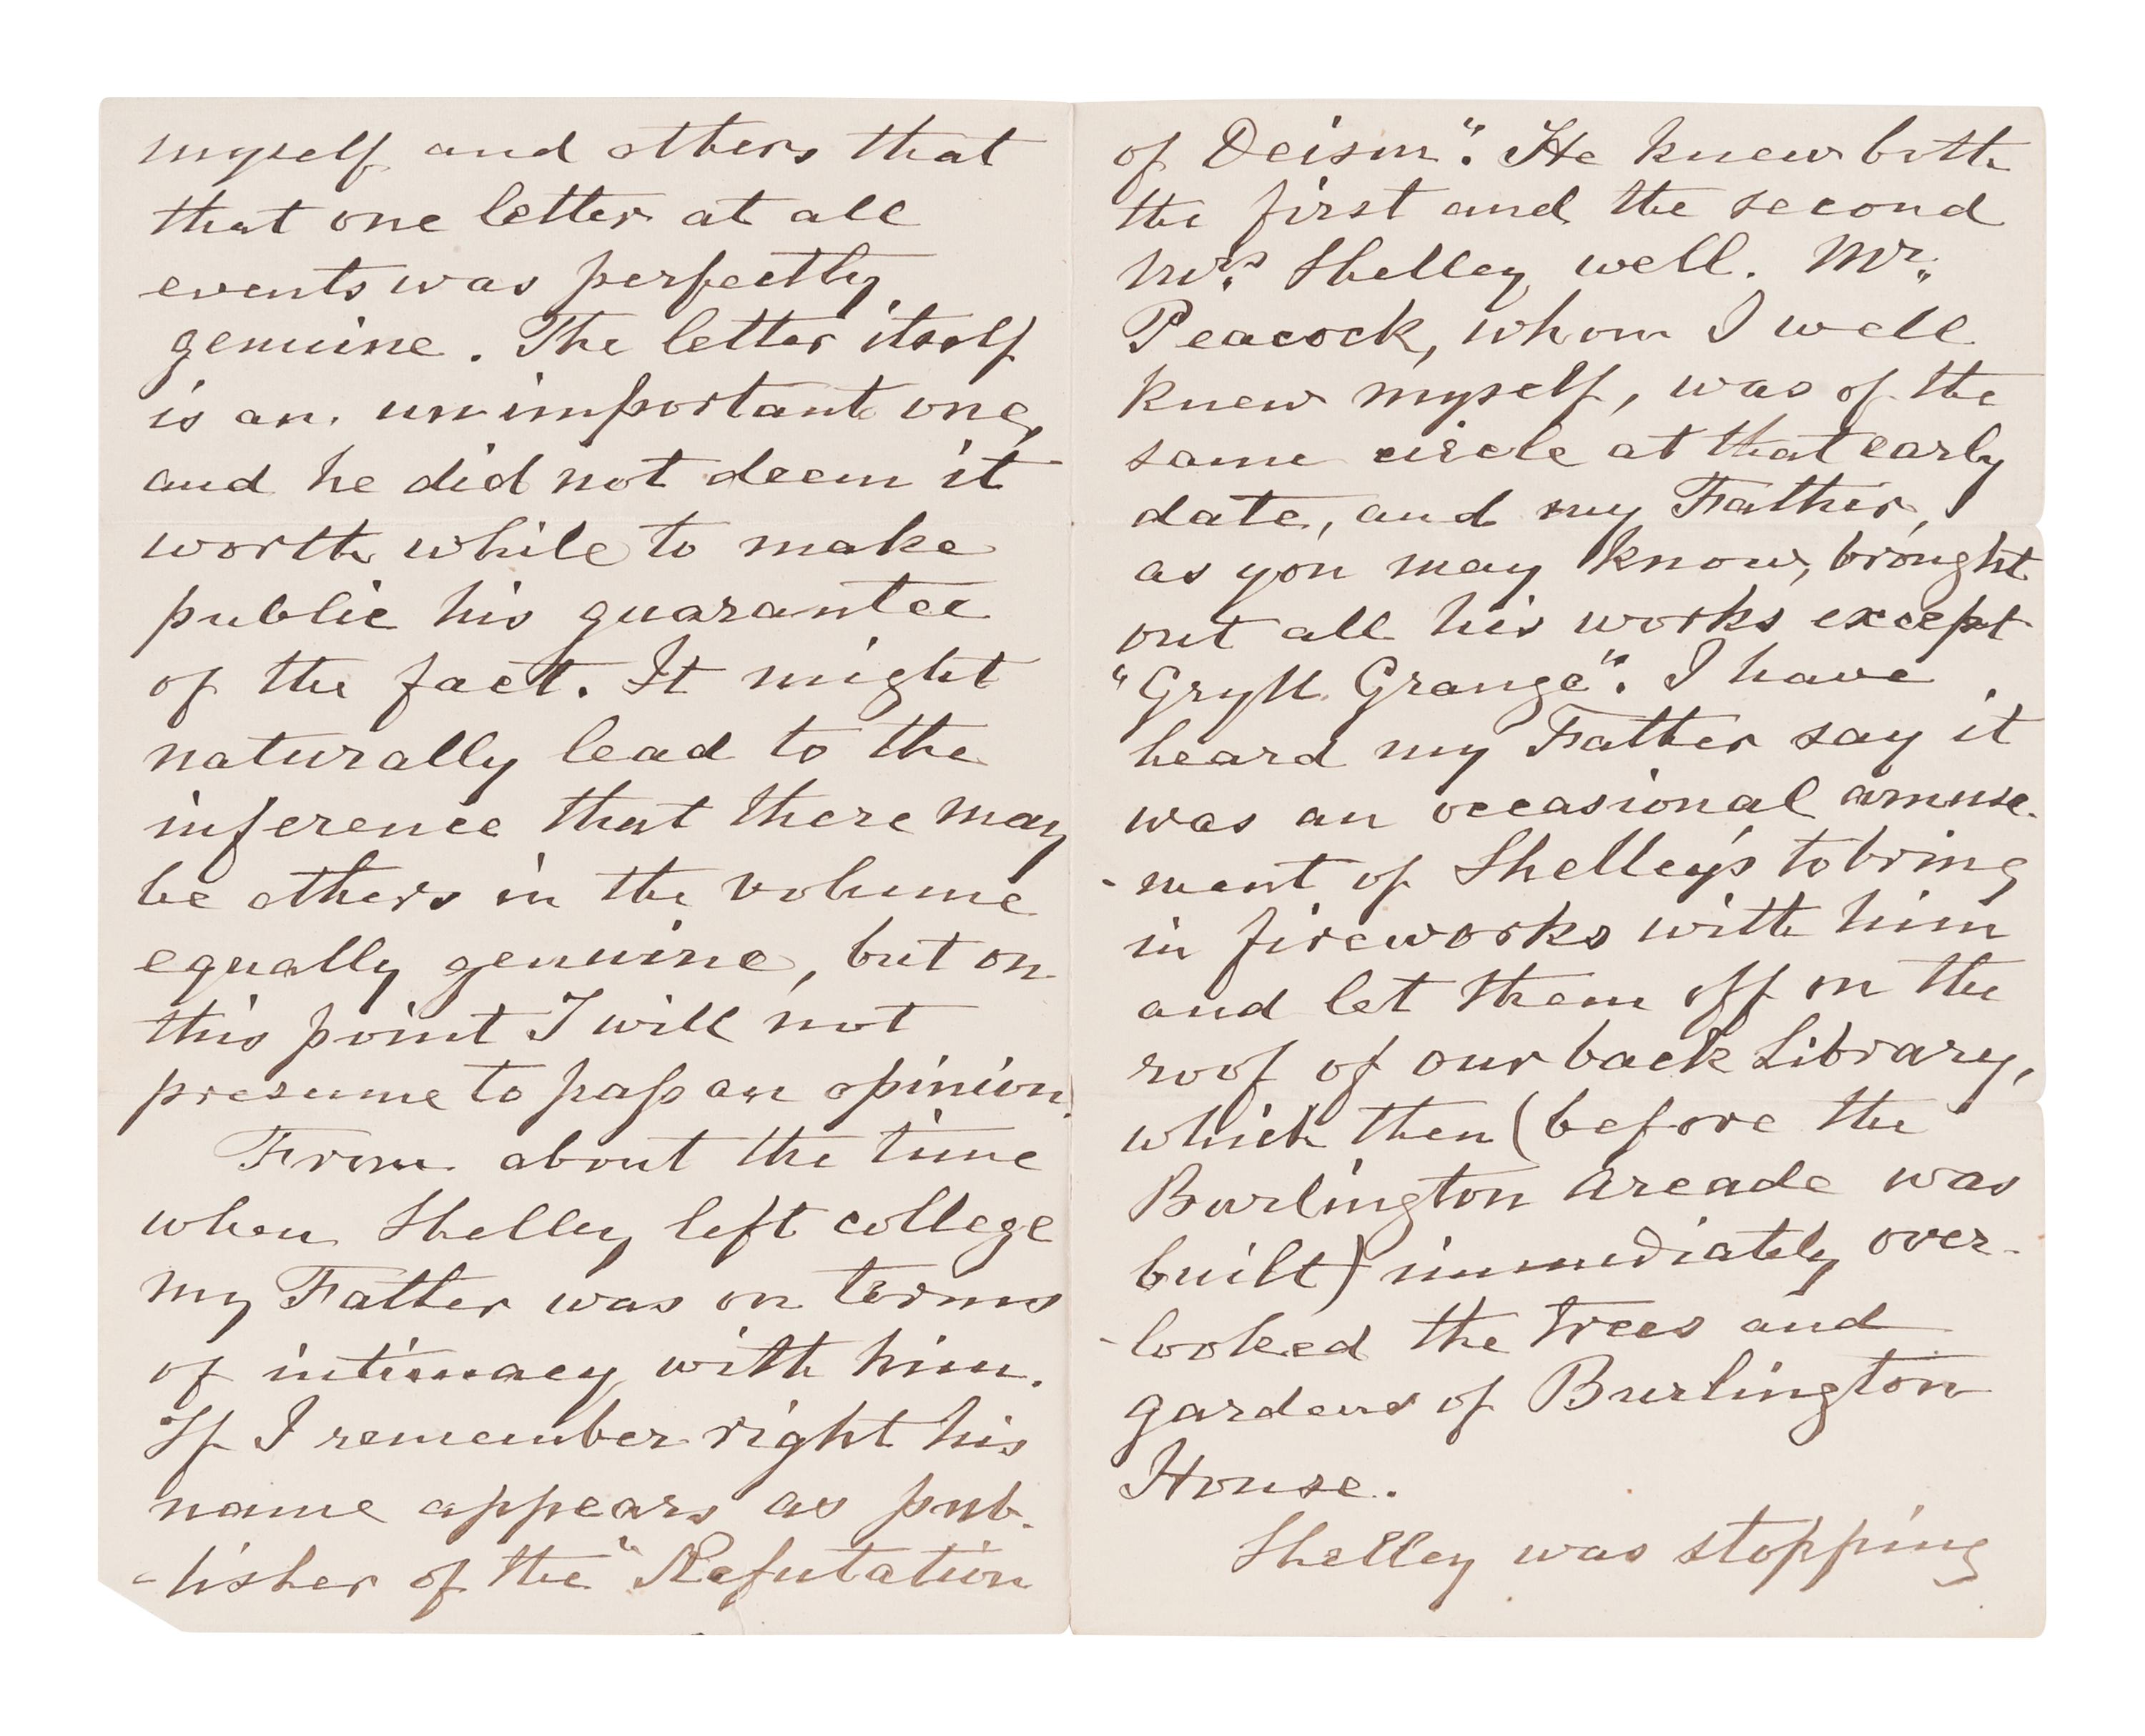 myself and others that
that one letter at all
events was perfectly
genuine. The letter itself
is an unimportant one,
and he did not deem it
worth while to make
public his guarantee
of the fact. It might
naturally lead to the
inference that there may
be others in the volume
equally genuine, but on
this point I will not
presume to paſs an opinion.
From about the time
when Shelley left college
my Father was on terms
of intimacy with him.
If I remember right his
name appears as pub-
-lisher of the "Refutation
of Deism". He knew both
the first and the second
Mrs. Shelley well. Mr.
Peacock, whom I well
knew myself, was of the
same circle at that early
date, and my Father,
as you may know, brought
out all his works except
"Gryll Grange". I have
heard my Father say it
was an occasional amuse-
-ment of Shelley's to bring
in fireworks with him
and let them off on the
roof of our back Library,
which then (before the
Burlington Arcade was
built) immediately over-
-looked the trees and
gardens of Burlington
House.
Shelley was stopping